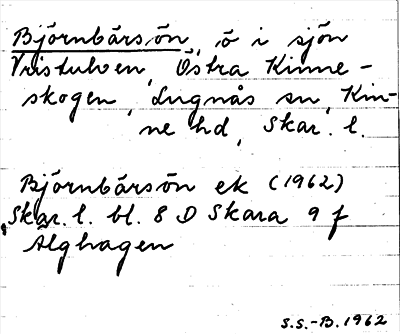 Björnbärsön, ö i sjön
Vristulven, Östra Kinne-
skogen, Lugnås sn, Kin-
ne hd, Skar. l.
Björnbärsön ek (1962)
Skar. l. bl. 8 D Skara 9 f
Älghagen
S.S.-B. 1962